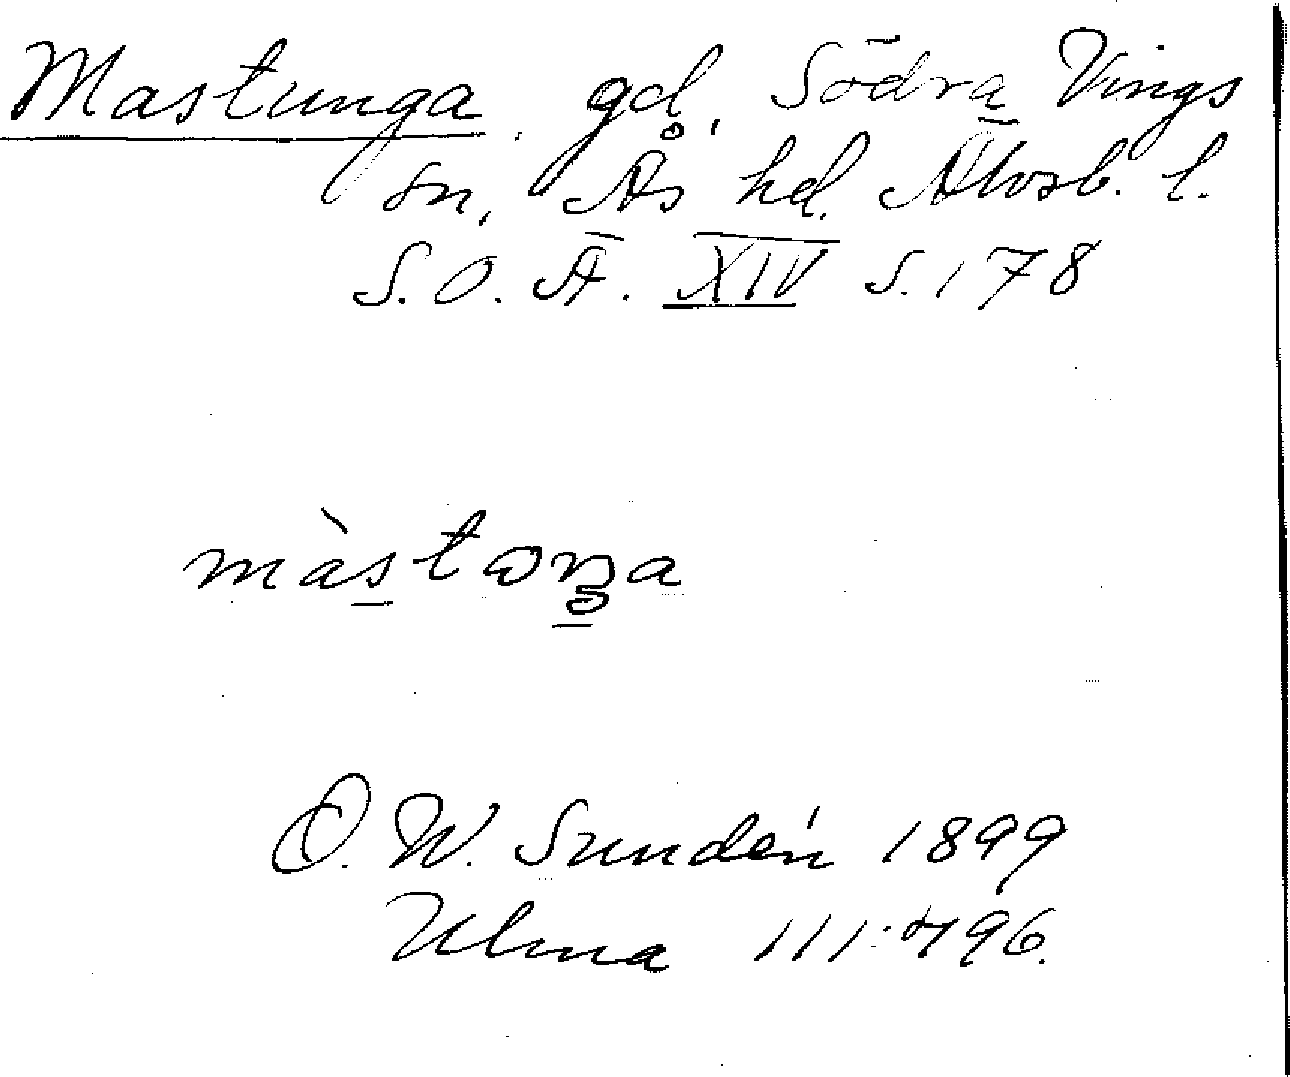 Mastunga. gd, Södra Vings
sn, Ås hd. Älvsb. l.
S.O.Ä. XIV s. 178
màstɷŋa
O. W. Sundén 1899
Ulma 111:496.